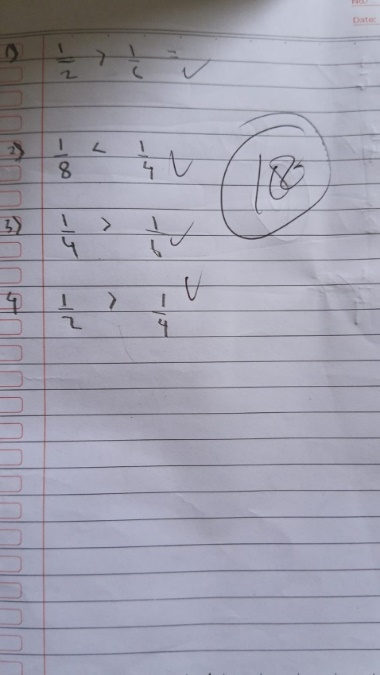 No:
Date:
1) 1/2 > 1/6 =
2) 1/8 < 1/4
3) 1/4 > 1/6
4 1/2 > 1/4